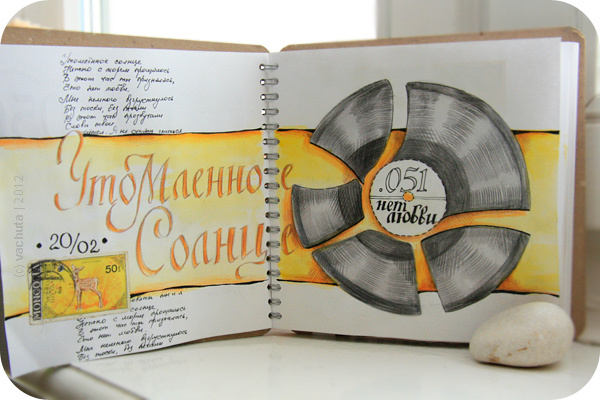 Утомлённое солнце
Нежно с морем прощалось
В этот час ты призналась,
Что нет любви.
Мне немного взгрустнулось
Без тоски, без печали
В этот час прозвучали
Слова твои.
Утомленное
Солнце
• 20/02 •
50
.051
нет
любви
солнце
Нежно с морем прощалось
В этот час ты призналась,
Что нет любви.
Мне немного взгрустнулось
Без тоски, без печали
© vachuta | 2012